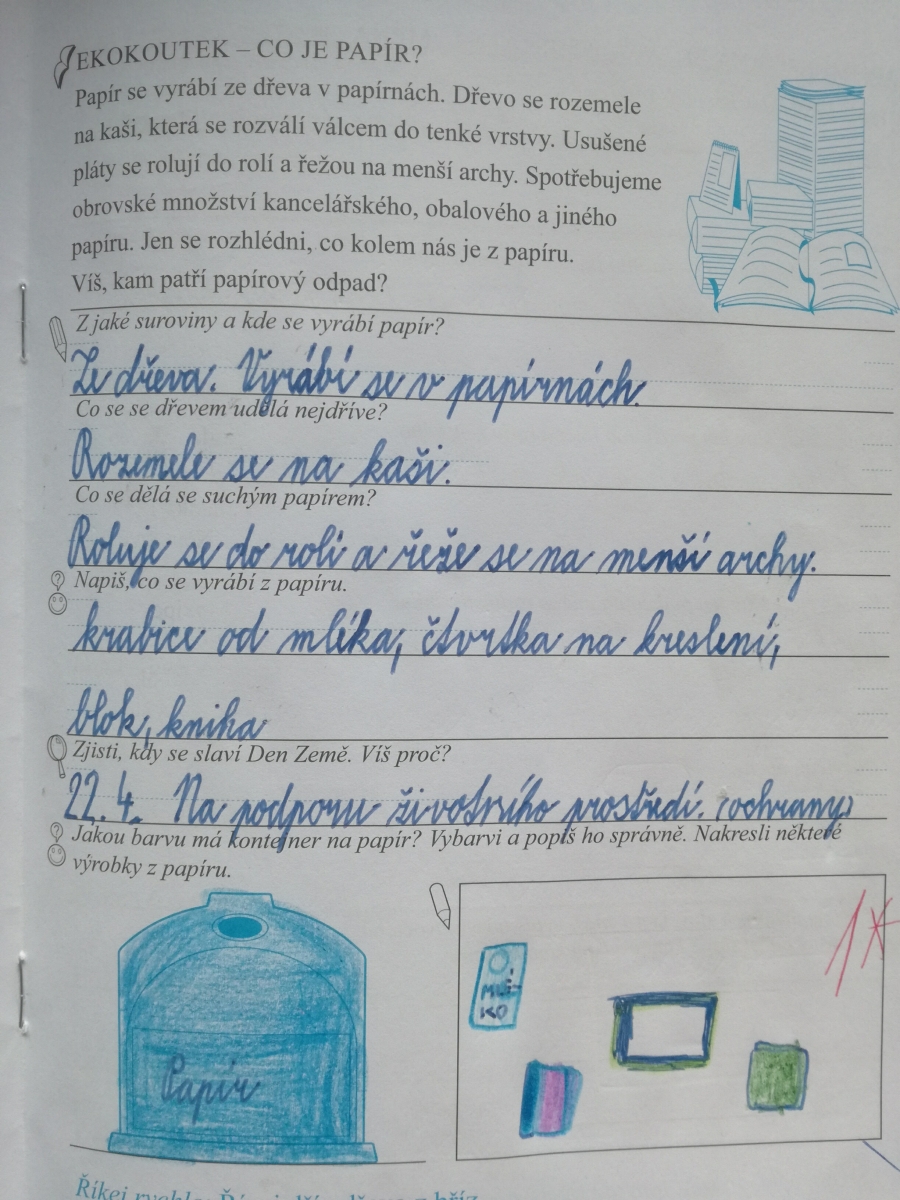 EKOKOUTEK – CO JE PAPÍR?
Papír se vyrábí ze dřeva v papírnách. Dřevo se rozemele
na kaši, která se rozválí válcem do tenké vrstvy. Usušené
pláty se rolují do rolí a řežou na menší archy. Spotřebujeme
obrovské množství kancelářského, obalového a jiného
papíru. Jen se rozhlédni, co kolem nás je z papíru.
Víš, kam patří papírový odpad?
Z jaké suroviny a kde se vyrábí papír?
Ze dřeva. Vyrábí se v papírnách.
Co se se dřevem udělá nejdříve?
Rozemele se na kaši.
Co se dělá se suchým papírem?
Roluje se do rolí a řeže se na menší archy.
Napiš, co se vyrábí z papíru.
krabice od mlíka, čtvrtka na kreslení,
blok, kniha
Zjisti, kdy se slaví Den Země. Víš proč?
22. 4. Na podporu životního prostředí. (ochrany)
Jakou barvu má kontejner na papír? Vybarvi a popiš ho správně. Nakresli některé
výrobky z papíru.
Papír
MLÉ-
KO
1*
Říkej rychle: